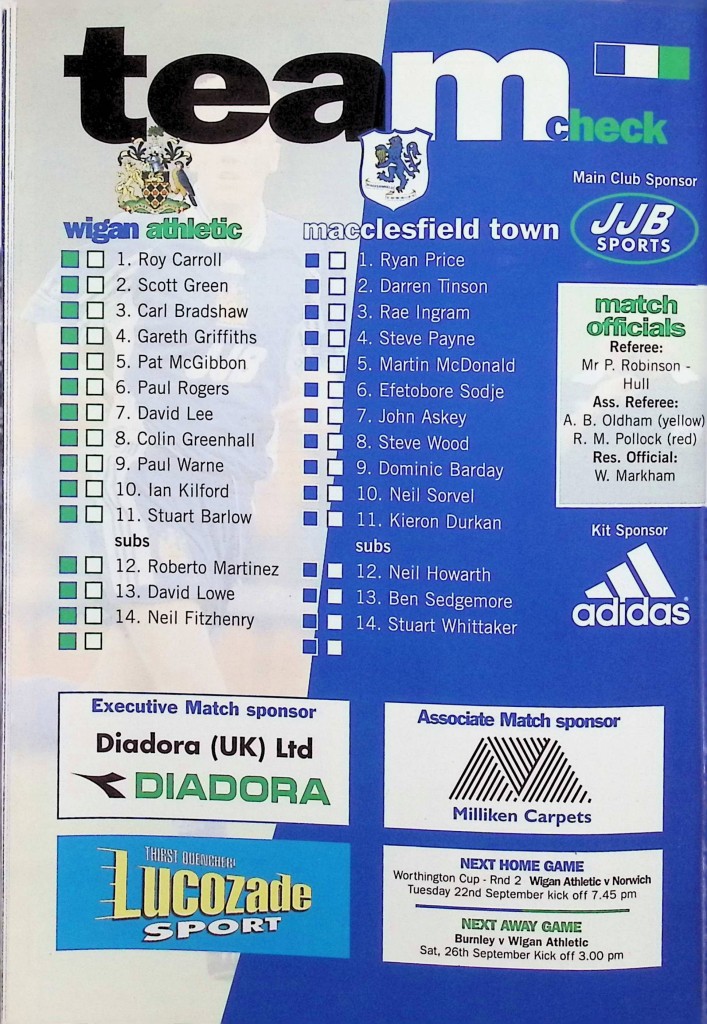 team
check
wigan athletic
1. Roy Carroll
2. Scott Green
3. Carl Bradshaw
4. Gareth Griffiths
5. Pat McGibbon
6. Paul Rogers
7. David Lee
8. Colin Greenhall
9. Paul Warne
10. Ian Kilford
11. Stuart Barlow
subs
12. Roberto Martinez
13. David Lowe
14. Neil Fitzhenry
macclesfield town
1. Ryan Price
2. Darren Tinson
3. Rae Ingram
4. Steve Payne
5. Martin McDonald
6. Efetobore Sodje
7. John Askey
8. Steve Wood
9. Dominic Barday
10. Neil Sorvel
11. Kieron Durkan
subs
12. Neil Howarth
13. Ben Sedgemore
14. Stuart Whittaker
Main Club Sponsor
JJB
SPORTS
match
officials
Referee:
Mr P. Robinson -
Hull
Ass. Referee:
A. B. Oldham (yellow)
R. M. Pollock (red)
Res. Official:
W. Markham
Kit Sponsor
adidas
Executive Match sponsor
Diadora (UK) Ltd
DIADORA
Associate Match sponsor
Milliken Carpets
THIRST QUENCHER!
LUCOZADE
SPORT
NEXT HOME GAME
Worthington Cup - Rnd 2 Wigan Athletic v Norwich
Tuesday 22nd September kick off 7.45 pm
NEXT AWAY GAME
Burnley v Wigan Athletic
Sat, 26th September Kick off 3.00 pm